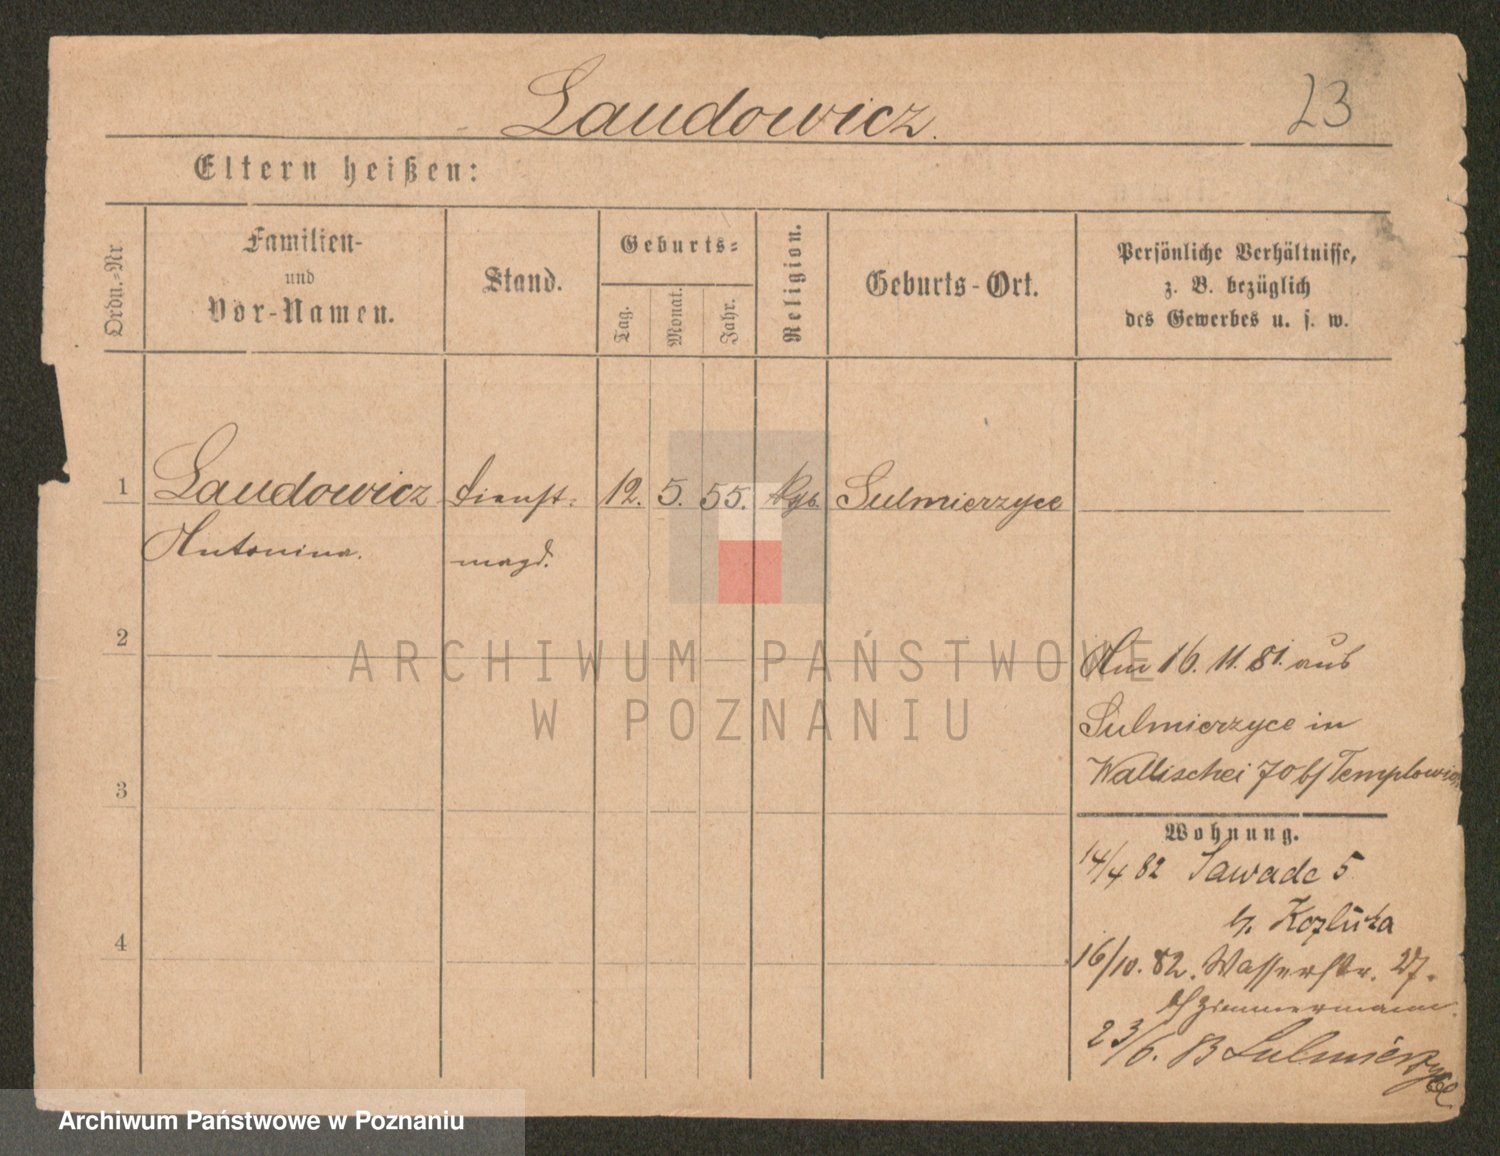 Laudowicz.
23
Eltern heißen:
Ordn.-Nr
Familien-
und
Vor-Namen.
Stand.
Geburts-
Tag.
Monat.
Jahr.
Religion.
Geburts-Ort.
Persönliche Verhältnisse,
z. B. bezüglich
des Gewerbes u. s. w.
1 Laudowicz Dienst- 12. 5. 55. Sulmierzyce
Antonina. magd.
2
Am 16. 11. 81. aus
Sulmierzyce in
Wallischei 70 b/ Templowicz
3
Wohnung.
14/4 82 Sawade 5
b.
4
16/10. 82. Wasserstr. 27.
b/ Zimmermann.
23/6. 83 Sulmierzyce
ARCHIWUM PAŃSTWOWE
W POZNANIU
Archiwum Państwowe w Poznaniu